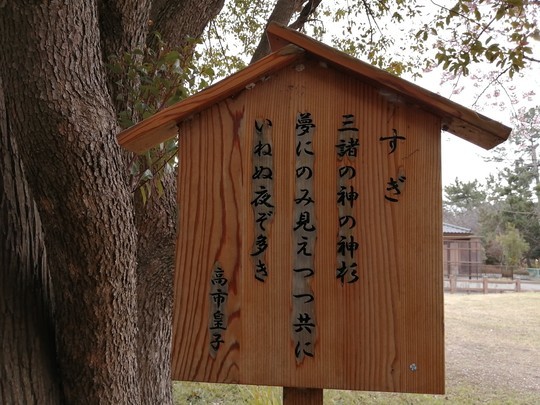 すぎ
三諸の神の神杉
夢にのみ見えつつ共に
いねぬ夜ぞ多き
高市皇子